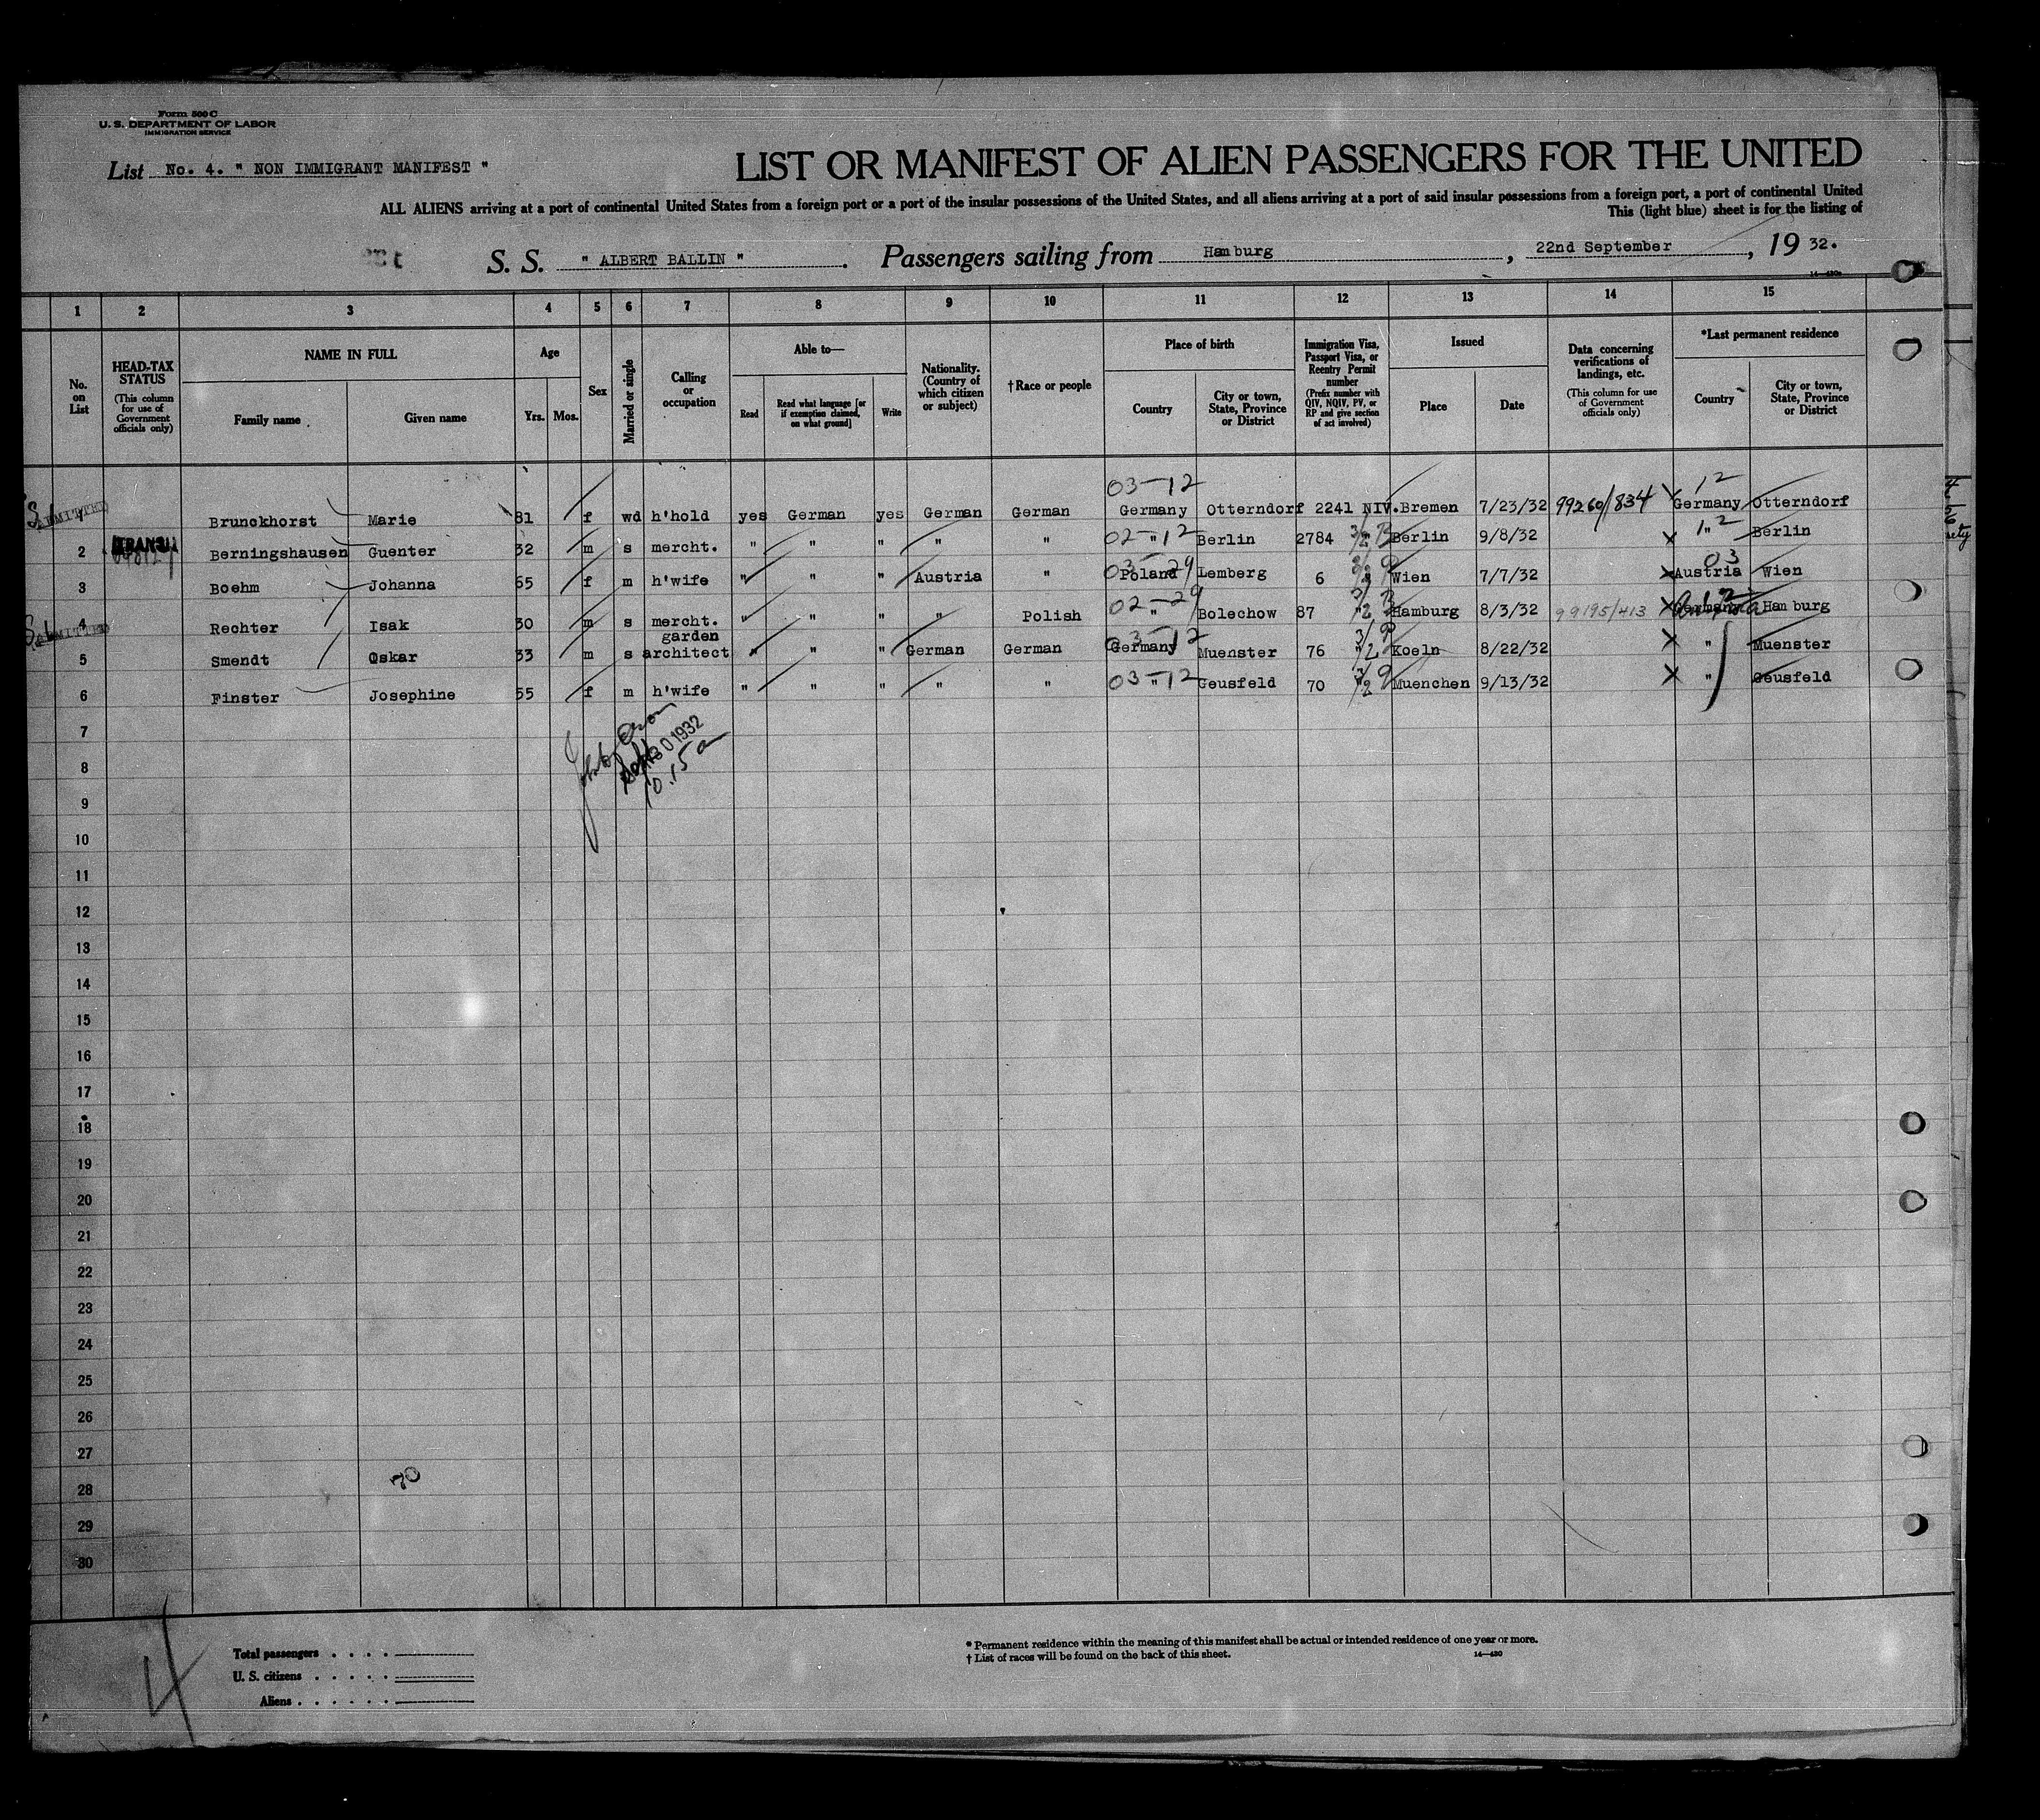 Form 500 C
U. S. DEPARTMENT OF LABOR
IMMIGRATION SERVICE
List No. 4. " NON IMMIGRANT MANIFEST "
LIST OR MANIFEST OF ALIEN PASSENGERS FOR THE UNITED
ALL ALIENS arriving at a port of continental United States from a foreign port or a port of the insular possessions of the United States, and all aliens arriving at a port of said insular possessions from a foreign port, a port of continental United
This (light blue) sheet is for the listing of
S. S. " ALBERT BALLIN " . Passengers sailing from Hamburg , 22nd September , 19 32.
1 2 3 4 5 6 7 8 9 10 11 12 13 14 15
No. on List
HEAD-TAX STATUS
(This column for use of Government officials only)
NAME IN FULL
Family name
Given name
Age
Yrs. Mos.
Sex
Married or single
Calling or occupation
Able to—
Read
Read what language [or if exemption claimed, on what ground]
Write
Nationality. (Country of which citizen or subject)
† Race or people
Place of birth
Country
City or town, State, Province or District
Immigration Visa, Passport Visa, or Reentry Permit number
(Prefix number with QIV, NQIV, PV, or RP and give section of act involved)
Issued
Place
Date
Data concerning verifications of landings, etc.
(This column for use of Government officials only)
*Last permanent residence
Country
City or town, State, Province or District
03-12 12
ADMITTED 1 Brunckhorst Marie 81 f wd h'hold yes German yes German German Germany Otterndorf 2241 NIV. Bremen 7/23/32 99260/834 Germany Otterndorf
2 TRANSIT Berningshausen Guenter 32 m s mercht. " " " " " 02-12 " Berlin 2784 3/2 " Berlin 9/8/32 12 " Berlin
3 Boehm Johanna 65 f m h'wife " " " Austria " 03-29 Poland Lemberg 6 3/2 Wien 7/7/32 03 Austria Wien
ADMITTED 4 Rechter Isak 30 m s mercht. " " " " Polish 02-29 " Bolechow 87 3/2 Hamburg 8/3/32 99195/413 12 Germany Hamburg
5 Smendt Oskar 33 m s garden architect " " " German German 03-12 Germany Muenster 76 3/2 Koeln 8/22/32 " Muenster
6 Finster Josephine 55 f m h'wife " " " " " 03-12 " Geusfeld 70 3/2 Muenchen 9/13/32 " Geusfeld
7
30 1932
10.15 a
8
9
10
11
12
13
14
15
16
17
18
19
20
21
22
23
24
25
26
27
28
29
30
4
Total passengers
U. S. citizens
Aliens
* Permanent residence within the meaning of this manifest shall be actual or intended residence of one year or more.
† List of races will be found on the back of this sheet.
14—430